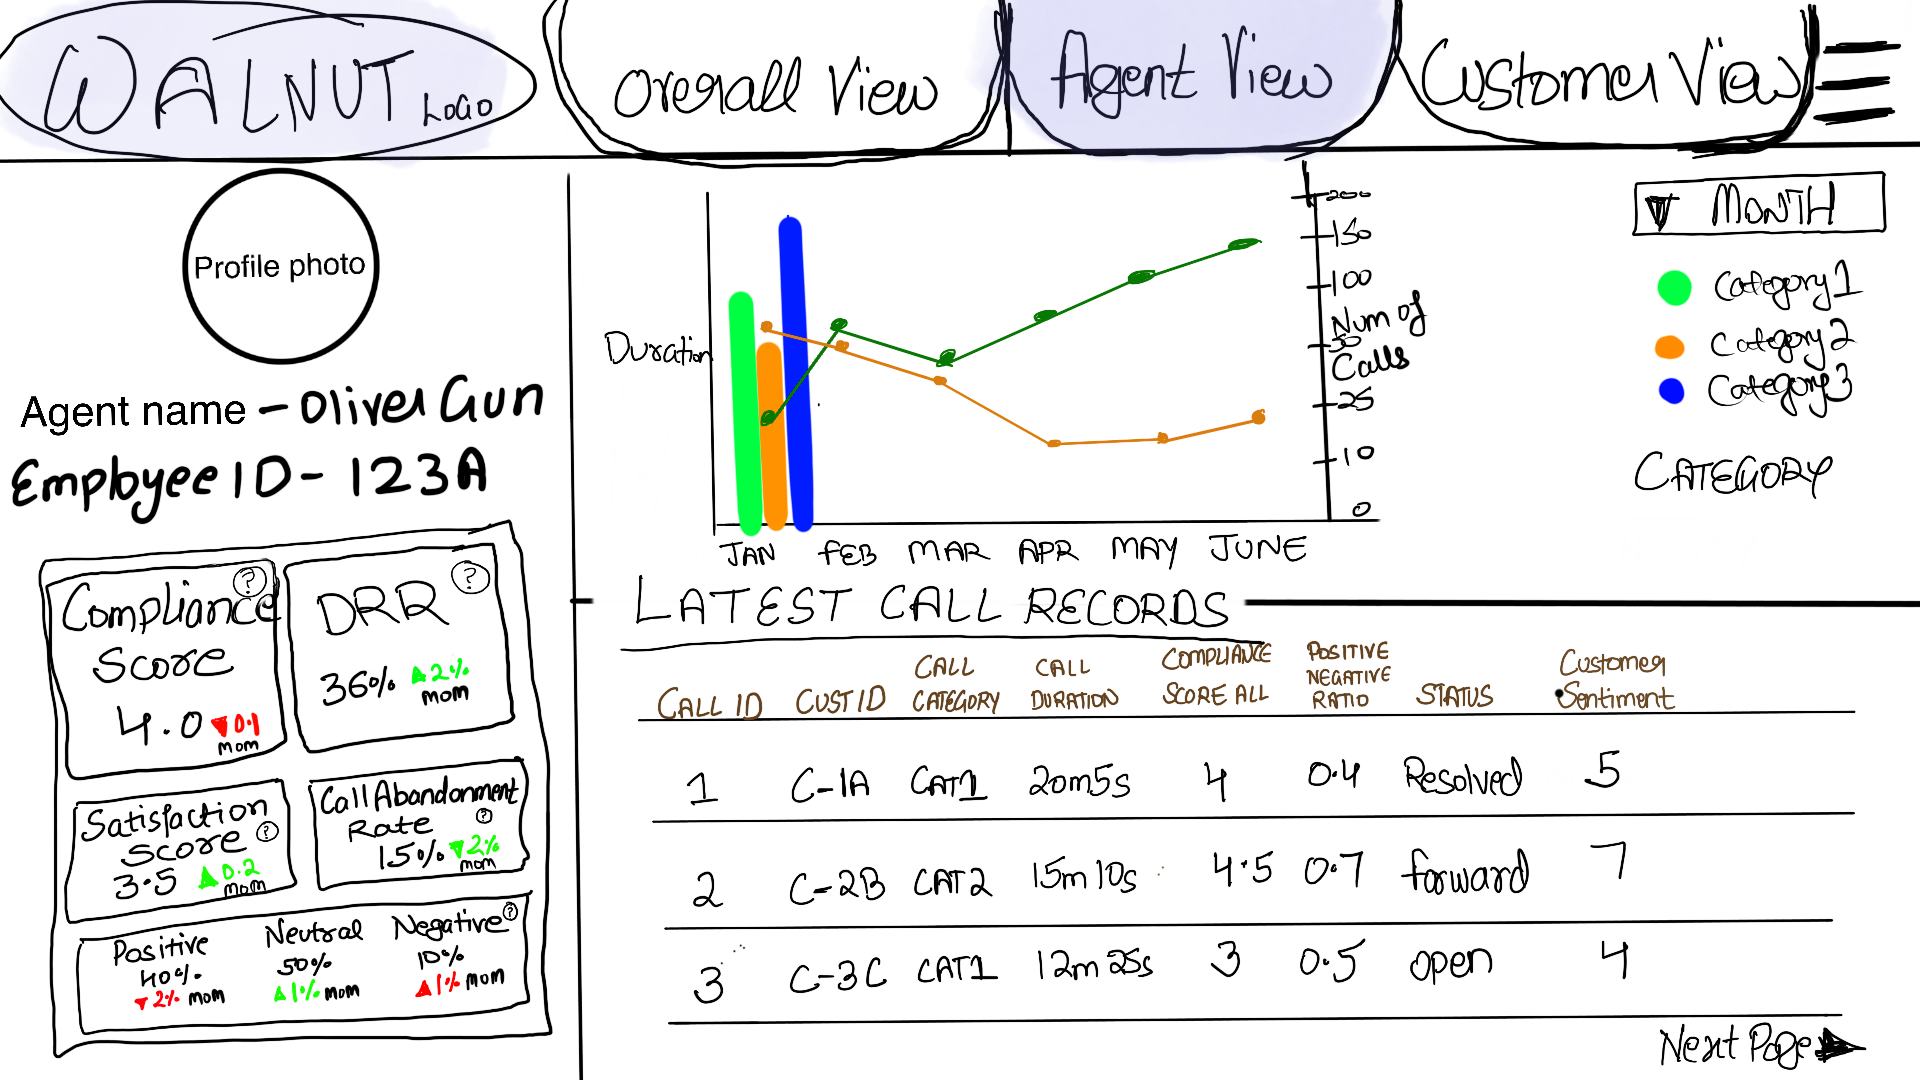 WALNUT LOGO
Overall View
Agent View
Customer View
Profile photo
Agent name - Oliver Gun
Employee ID - 123A
Compliance ?
Score
4.0 ▼0.1
mom
DRR ?
36% ▲2%
mom
Satisfaction
Score ?
3.5 ▲0.2
mom
Call Abandonment
Rate ?
15% ▼2%
mom
Positive
40%
▼2% mom
Neutral
50%
▲1% mom
Negative ?
10%
▲1% mom
Duration
200
150
100
Num of
50
Calls
25
10
0
JAN FEB MAR APR MAY JUNE
▼ MONTH
Category1
Category2
Category3
CATEGORY
LATEST CALL RECORDS
CALL ID
CUST ID
CALL
CATEGORY
CALL
DURATION
COMPLIANCE
SCORE ALL
POSITIVE
NEGATIVE
RATIO
STATUS
Customer
Sentiment
1 C-1A CAT1 20m5s 4 0.4 Resolved 5
2 C-2B CAT2 15m10s 4.5 0.7 forward 7
3 C-3C CAT1 12m25s 3 0.5 open 4
Next Page